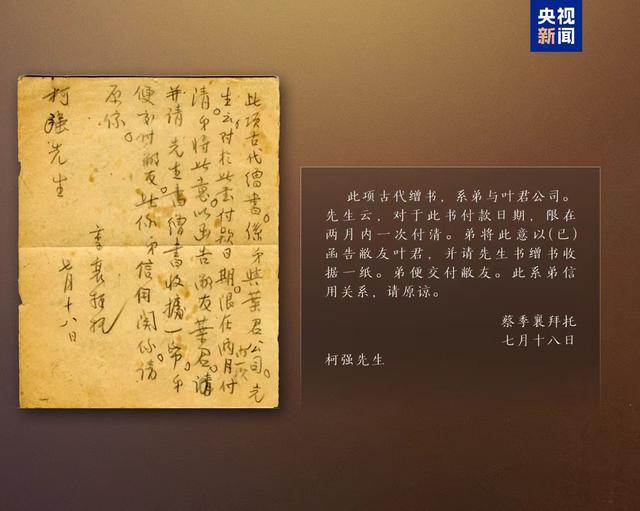 央视
新闻
此项古代缯書。係弟與葉君公司。先
生云对於此書付款日期。限在两月内一次付
清。弟将此意以函告敝友葉君。
并请 先生書缯書收據一帋。弟
便交付敝友。此係弟信用関係。請
原谅。
季襄拜托
七月十八日
柯强先生
此项古代缯书，系弟与叶君公司。
先生云，对于此书付款日期，限在
两月内一次付清。弟将此意以(已)
函告敝友叶君，并请先生书缯书收
据一纸。弟便交付敝友。此系弟信
用关系，请原谅。
蔡季襄拜托
七月十八日
柯强先生